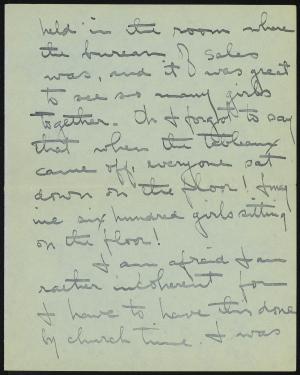 held in the room where
the bureau of sales
was, and it was great
to see so many girls
together. Oh I forgot to say
that when the tableaux
came off, everyone sat
down on the floor! Imag
ine six hundred girls sitting
on the floor!
I am afraid I am
rather incoherent for
I have to have this done
by church time. I was